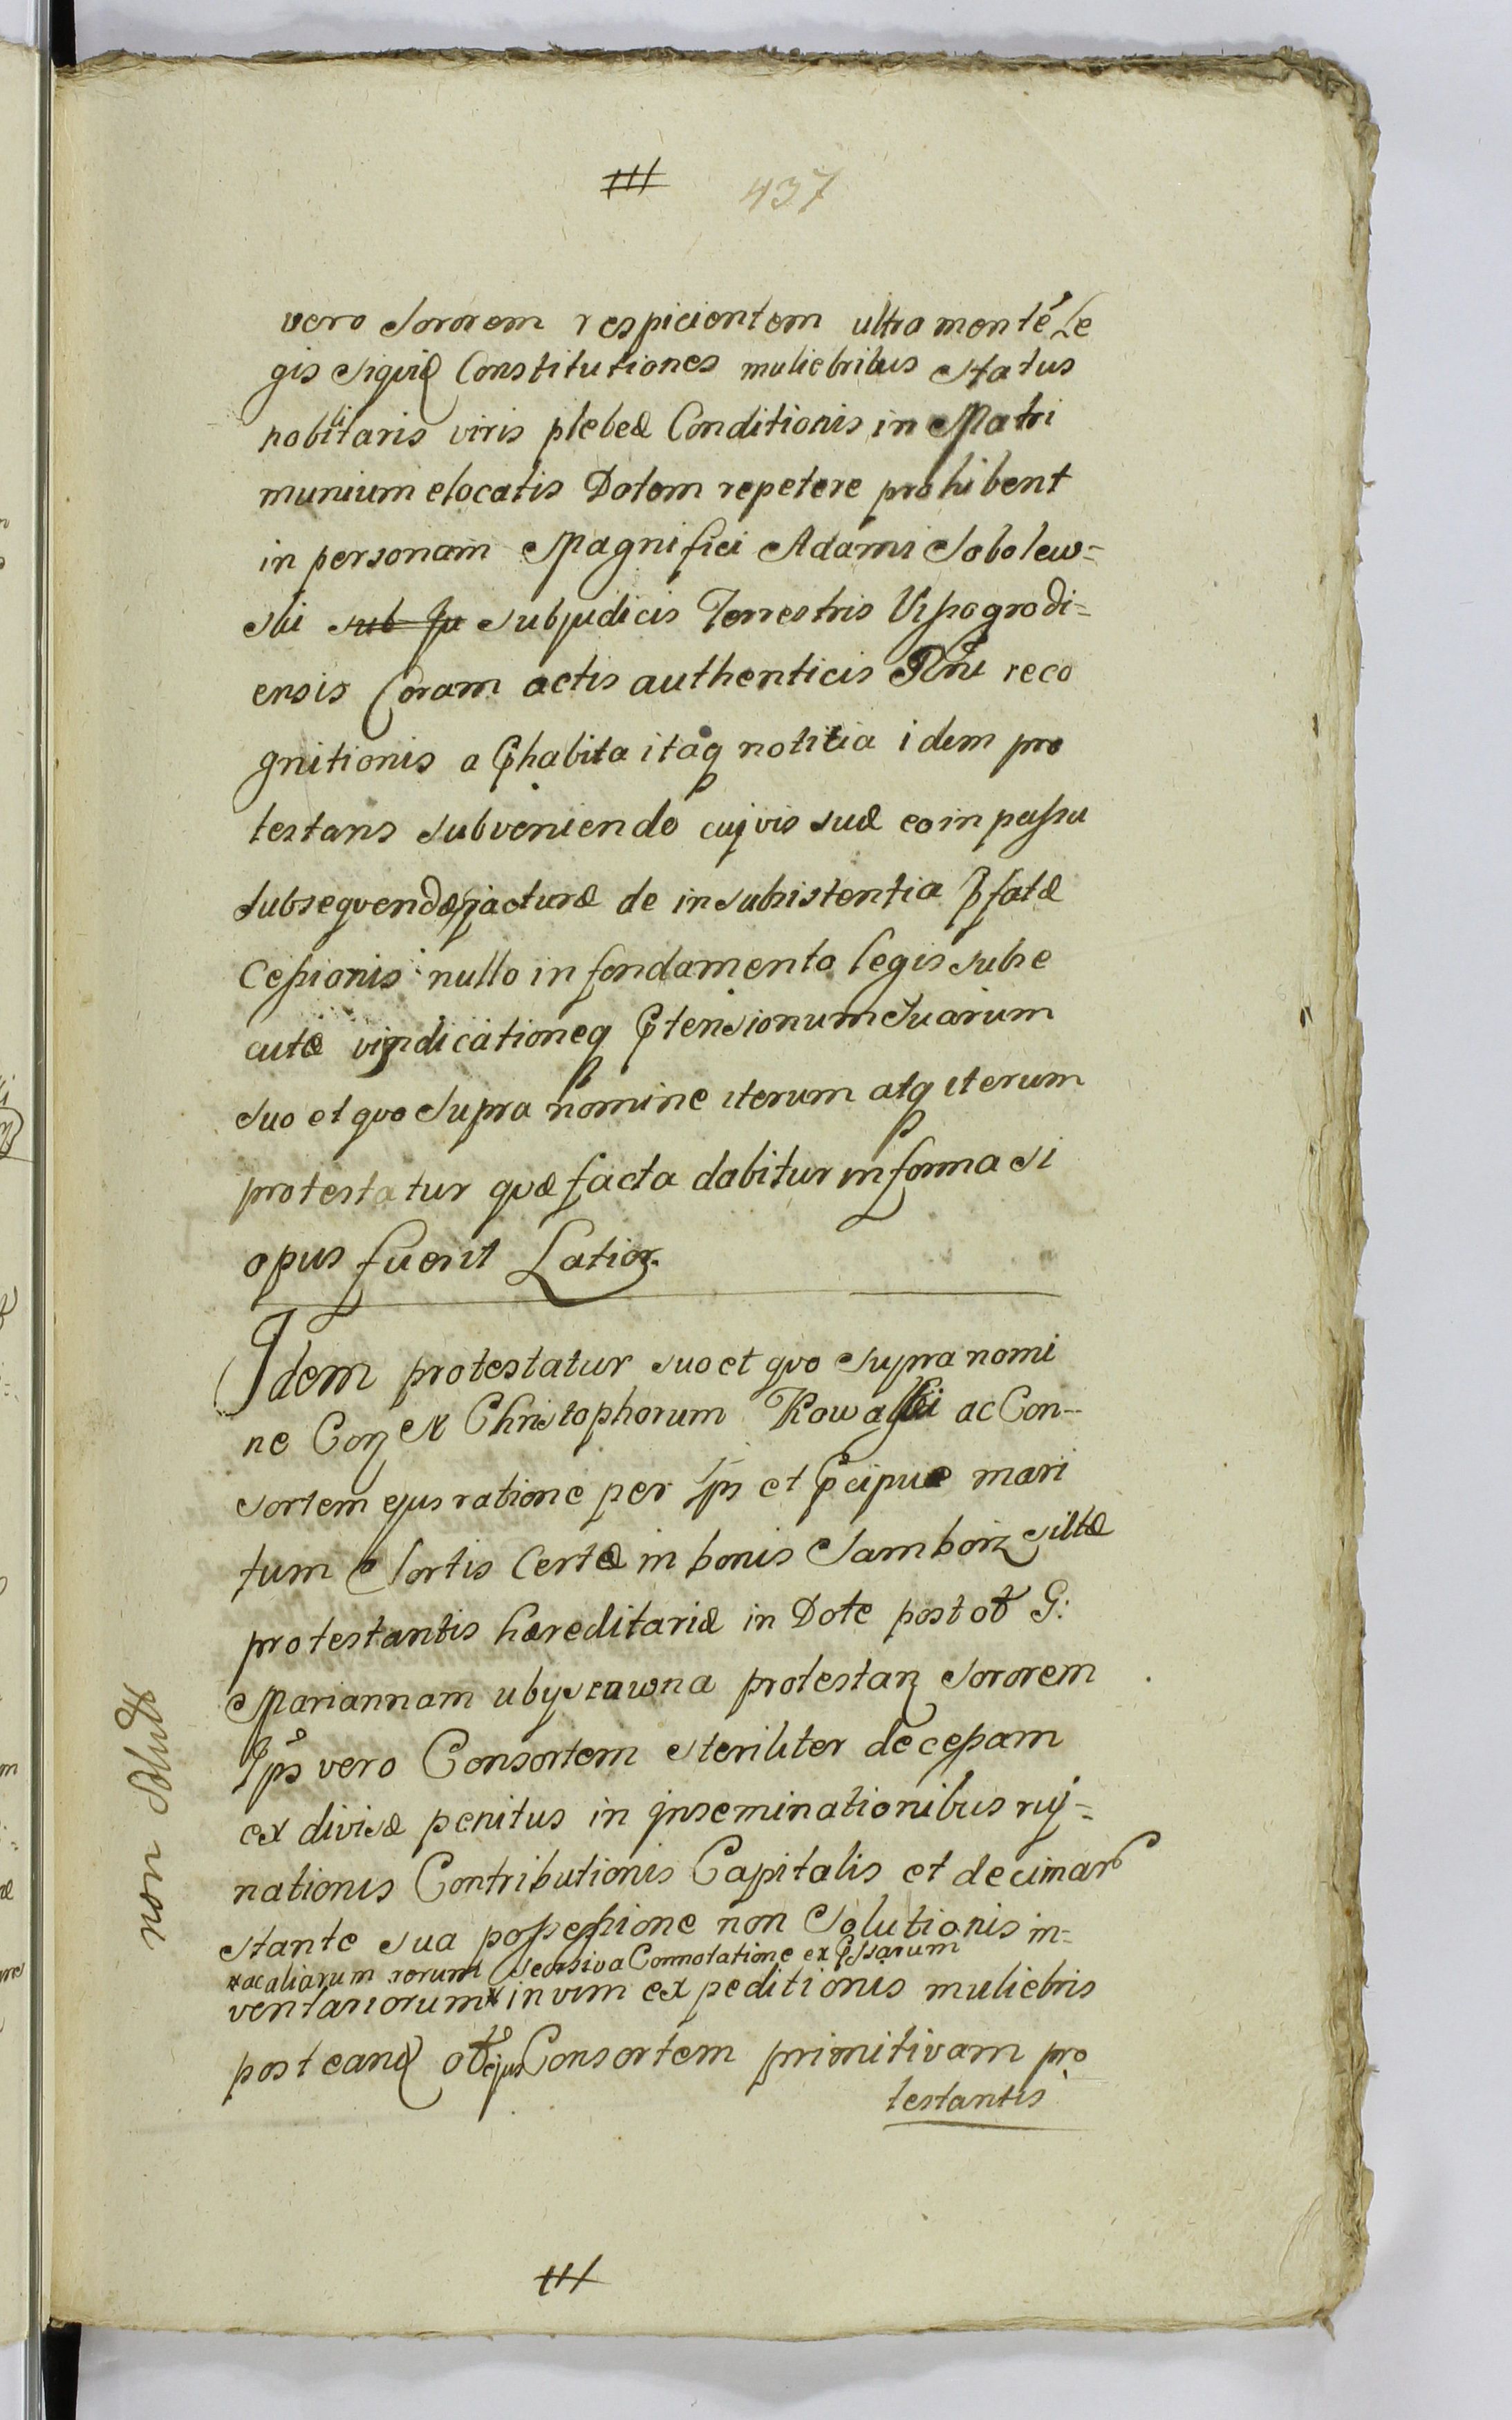 437
vero Sororem respicientem ultra mentē Le
gis Siquid Constitutiones muliebribus Status
nobilitaris viris plebeæ Conditionis in Matri
munium elocatis Dotem repetere prohibent
in personam Magnifici Adami Sobolew=
ski sub Ju Subjudicis Terrestris Vissogrodi=
ensis Coram actis authenticis Rñi reco
gnitionis a habita itaq notitia idem pro
testans subveniendo cujvis suæ eo in passu
subsequendæ jacturæ de insubsistentia fatæ
Cessionis nullo in fondamento legis subse
cutæ vindicationeq tensionum Suarum
suo et quo supra nomine iterum atq iterum
protestatur quæ facta dabitur in forma si
opus fuerit Latior.
Idem protestatur suo et quo supra nomi
ne Cor M Christophorum Kowalski ac Con-
sortem ejus ratione per Ips et cipue mari
tum Sortis Certæ in bonis Samborz sittæ
protestantis hæreditariæ in Dote post ob G:
Mariannam ubyszuwna protestan Sororem
Ips vero Consortem steriliter decessam
ex divisæ penitus in inseminationibus ruj=
nationis Contributionis Capitalis et decimar
stante sua possessione non Solutionis in=
xacaliarum rerum Seorsiva Connotatione ex ssarum
ventariorum x invim expeditionis muliebris
post eand ob ejus Consortem primitivam pro
testantis
non solutt